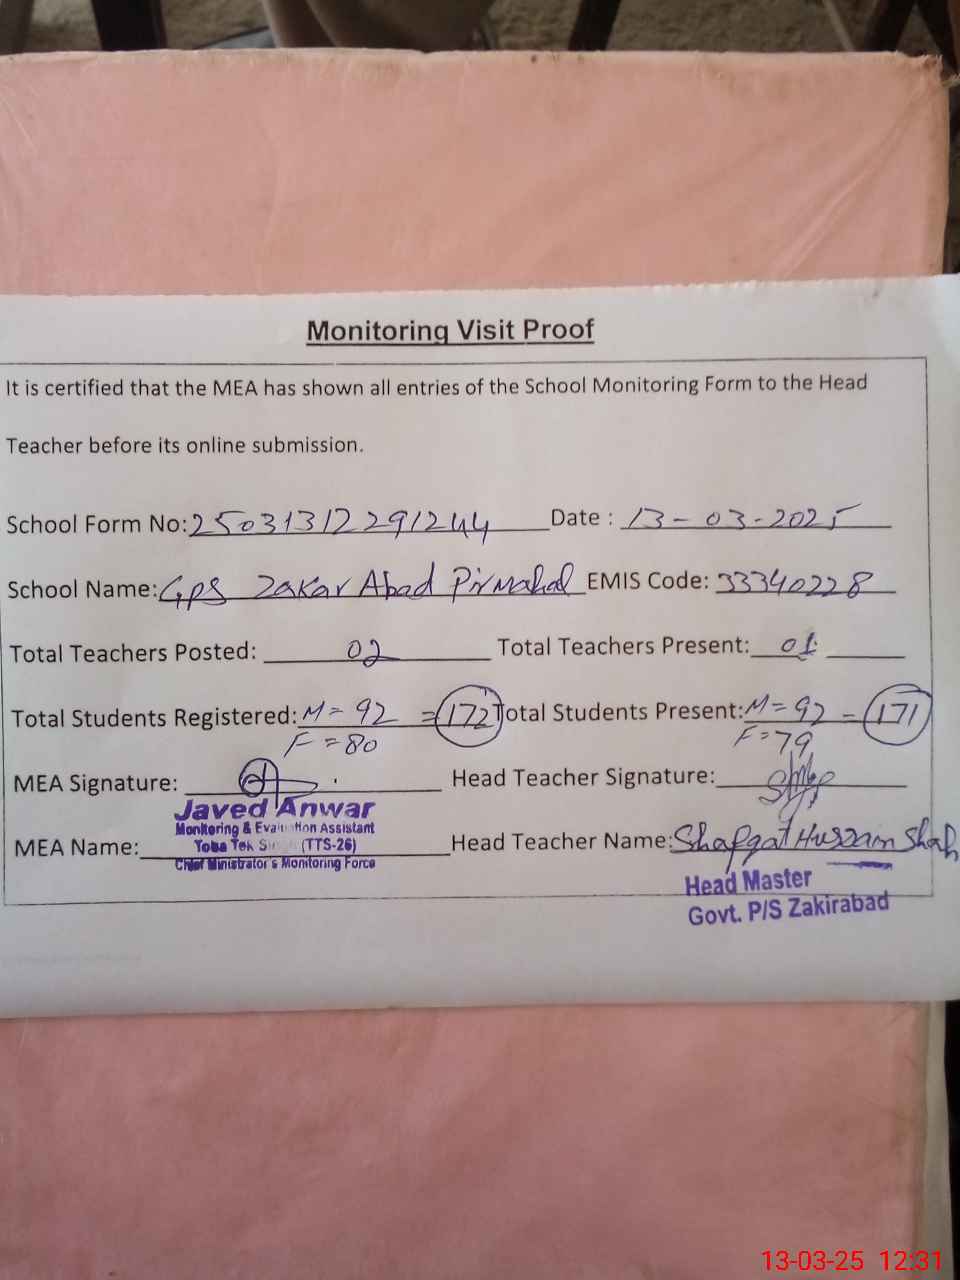 Monitoring Visit Proof
It is certified that the MEA has shown all entries of the School Monitoring Form to the Head
Teacher before its online submission.
School Form No: 250313122291244 Date : 13-03-2025
School Name: GPS Zakar Abad Pirmahal EMIS Code: 33340228
Total Teachers Posted: 02 Total Teachers Present: 01
Total Students Registered: M= 92 = 172 Total Students Present: M= 92 - 171
F = 80 F = 79
MEA Signature: Head Teacher Signature:
Javed Anwar
Monitoring & Evaluation Assistant
Toba Tek Singh (TTS-26)
MEA Name: Head Teacher Name: Shafqat Hussain Shah
Chief Ministrator's Monitoring Force
Head Master
Govt. P/S Zakirabad
13-03-25 12:31